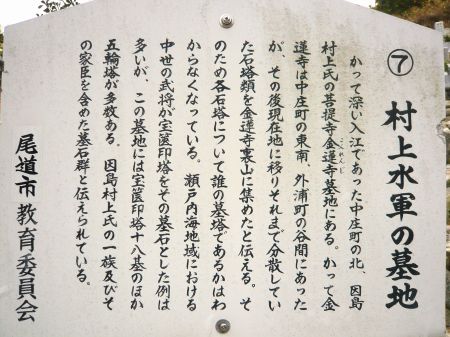 ⑦ 村上水軍の墓地
かつて深い入江であった中庄町の北、因島
村上氏の菩提寺金蓮寺墓地にある。かつて金
蓮寺は中庄町の東南、外浦町の谷間にあった
が、その後現在地に移りそれまで分散してい
た石塔類を金蓮寺裏山に集めたと伝える。そ
のため各石塔について誰の墓塔であるかはわ
からなくなっている。瀬戸内海地域における
中世の武将が宝篋印塔をその墓石とした例は
多いが、この墓地には宝篋印塔十八基のほか
五輪塔が多数ある。因島村上氏の一族及びそ
の家臣を含めた墓石群と伝えられている。
尾道市教育委員会